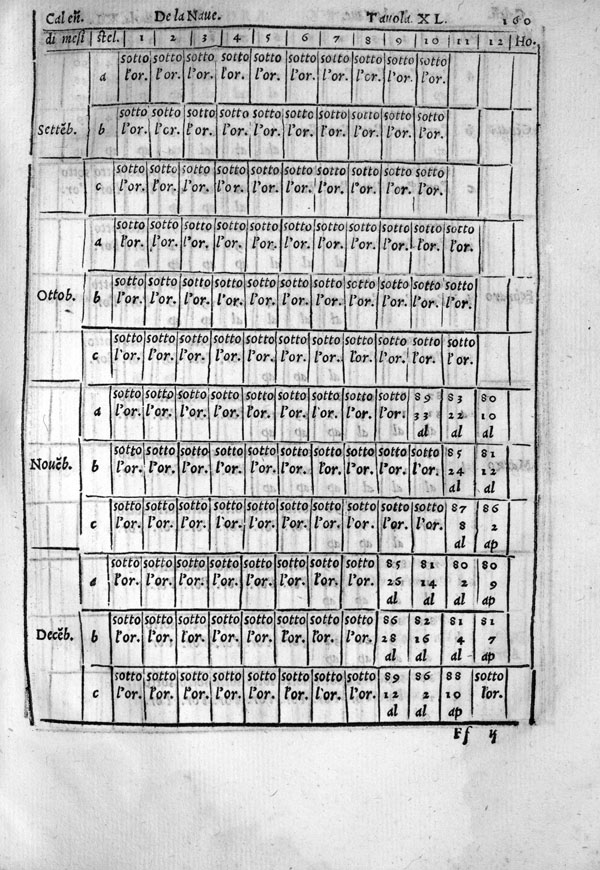 Cal eñ. De la Naue. Tauola XL. 160
di mesi stel. 1 2 3 4 5 6 7 8 9 10 11 12 Ho.
sotto sotto sotto sotto sotto sotto sotto sotto sotto sotto
a l'or. l'or. l'or. l'or. l'or. l'or. l'or. l'or. l'or. l'or.
sotto sotto sotto sotto sotto sotto sotto sotto sotto sotto
Settēb. b l'or. l'or. l'or. l'or. l'or. l'or. l'or. l'or. l'or. l'or.
sotto sotto sotto sotto sotto sotto sotto sotto sotto sotto
c l'or. l'or. l'or. l'or. l'or. l'or. l'or. l'or. l'or. l'or.
sotto sotto sotto sotto sotto sotto sotto sotto sotto sotto sotto
a l'or. l'or. l'or. l'or. l'or. l'or. l'or. l'or. l'or. l'or. l'or.
sotto sotto sotto sotto sotto sotto sotto sotto sotto sotto sotto
Ottob. b l'or. l'or. l'or. l'or. l'or. l'or. l'or. l'or. l'or. l'or. l'or.
sotto sotto sotto sotto sotto sotto sotto sotto sotto sotto sotto
c l'or. l'or. l'or. l'or. l'or. l'or. l'or. l'or. l'or. l'or. l'or.
sotto sotto sotto sotto sotto sotto sotto sotto sotto 89 83 80
a l'or. l'or. l'or. l'or. l'or. l'or. l'or. l'or. l'or. 33 22 10
al al al
sotto sotto sotto sotto sotto sotto sotto sotto sotto sotto 85 81
Nouēb. b l'or. l'or. l'or. l'or. l'or. l'or. l'or. l'or. l'or. l'or. 24 12
al al
sotto sotto sotto sotto sotto sotto sotto sotto sotto sotto 87 86
c l'or. l'or. l'or. l'or. l'or. l'or. l'or. l'or. l'or. l'or. 8 2
al ap
sotto sotto sotto sotto sotto sotto sotto sotto 85 81 80 80
a l'or. l'or. l'or. l'or. l'or. l'or. l'or. l'or. 26 14 2 9
al al al ap
sotto sotto sotto sotto sotto sotto sotto sotto 86 82 81 81
Decēb. b l'or. l'or. l'or. l'or. l'or. l'or. l'or. l'or. 28 16 4 7
al al al ap
sotto sotto sotto sotto sotto sotto sotto sotto 89 86 88 sotto
c l'or. l'or. l'or. l'or. l'or. l'or. l'or. l'or. 12 2 10 l'or.
al al ap
Ff ij